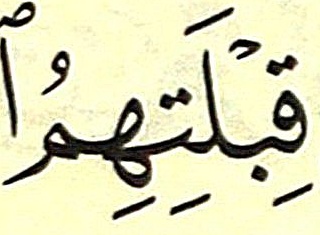 قِبْلَتِهِمُ ٱ